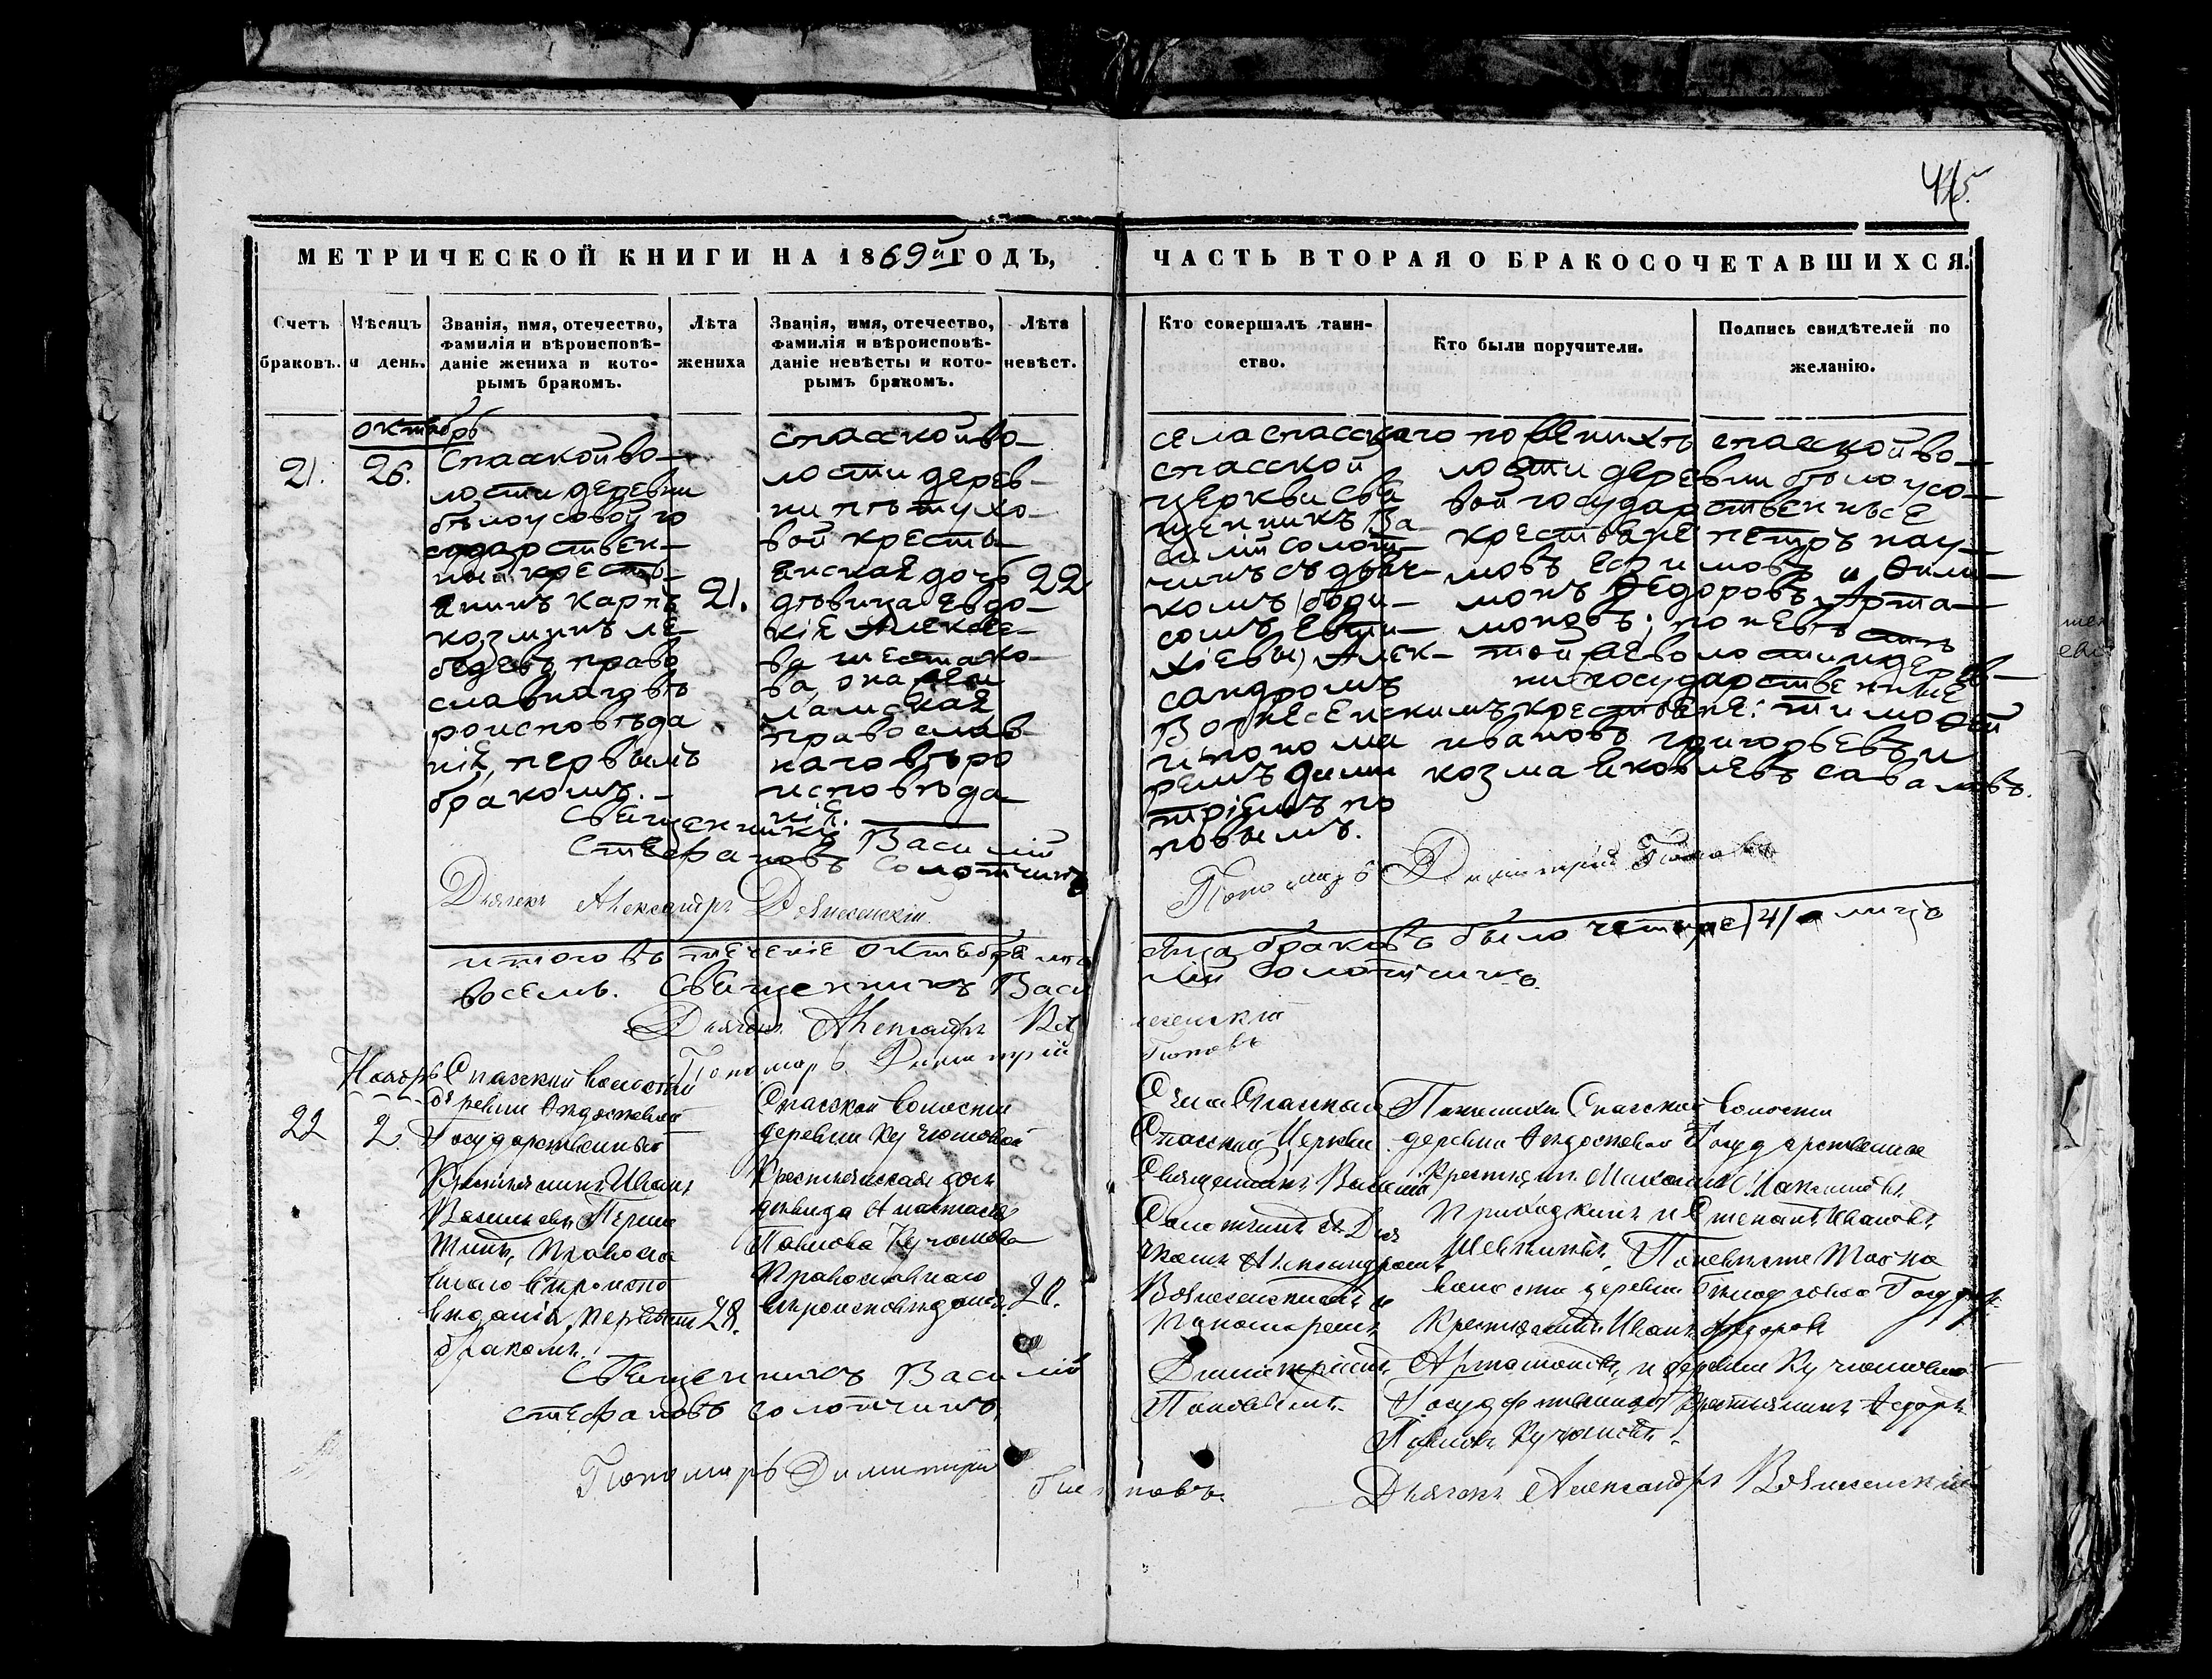 445.
МЕТРИЧЕСКОЙ КНИГИ НА 1869й ГОДЪ,
ЧАСТЬ ВТОРАЯ О БРАКОСОЧЕТАВШИХСЯ.
Счетъ браковъ.
Мѣсяцъ и день.
Званія, имя, отечество,
фамилія и вѣроисповѣ-
даніе жениха и кото-
рымъ бракомъ.
Лѣта
жениха
Званія, имя, отечество,
фамилія и вѣроисповѣ-
даніе невѣсты и кото-
рымъ бракомъ.
Лѣта
невѣст.
Кто совершалъ таин-
ство.
Кто были поручители.
Подпись свидѣтелей по
желанію.
октябрь
21.
26.
Спаской во-
лости деревни
бѣлоусовой го
сударствен-
ный кресть-
янинъ карпъ
козминъ ле-
бедевъ, право
славнаго вѣ
роисповѣда
нія, первымъ
бракомъ.
21.
спасской во-
лости дерев-
ни пѣтухо-
вой кресть-
янская дочь
дѣвица Евдо-
кія Алексее-
ва шестако-
ва, она
православ-
наго вѣро
исповѣда-
нія.
22
села спасскаго
спасской
церкви свя
щенникъ Ва-
силій солот-
чинъ съ дьяч-
комъ
Алек-
сандромъ
Вознесенскимъ
и понома
ремъ дими
тріемъ по
повымъ.
по женихѣ спасской во-
лости деревни бѣлоусо-
вой государственные
крестьяне петръ нау-
мовъ ефимовъ и фили-
монъ Федоровъ Арта-
моновъ; по невѣстѣ
той же волости и дерев-
ни государственные
крестьяне: тимофей
ивановъ григорьевъ и
козма яковлевъ савановъ.
Священникъ Василій
Стефановъ солотчинъ
Дьячекъ Александръ Вознесенскій.
Пономарь Димитрій Поповъ
итого въ теченіе октября мѣсяца браковъ было четыре /4/ а лицъ
восемь. Священникъ Василій Солотчинъ.
Дьячекъ Александръ Вознесенскій
Пономарь Димитрій Поповъ
Ноябрь
22
2.
Спасской волости
деревни
Государственный
Крестьянинъ Иванъ
Васильевъ
Правосла
внаго вѣроиспо
вѣданія, первымъ
бракомъ.
28.
Спасской волости
деревни Кучюмовой
Крестьянская дочь
дѣвица Анастасія
Павлова Кучюмова
Православнаго
вѣроисповѣданія.
20.
Села Спаскаго
Спасской Церкви
Священникъ Василій
Солотчинъ съ Дья
чкомъ Александромъ
Вознесенскимъ и
Пономаремъ
Димитріемъ
Поповымъ.
По женихѣ Спасской волости
деревни Государственные
Крестьяне Михаилъ
и Степанъ Ивановъ
По невѣстѣ той же
волости деревни Государ.
Крестьянинъ Иванъ Федоровъ
Артамоновъ, и деревни Кучюмовой
Государственный Крестьянинъ Федоръ
Павловъ Кучюмовъ.
Священникъ Василій
стефановъ солотчинъ,
Пономарь Димитрій Поповъ.
Дьячекъ Александръ Вознесенскій